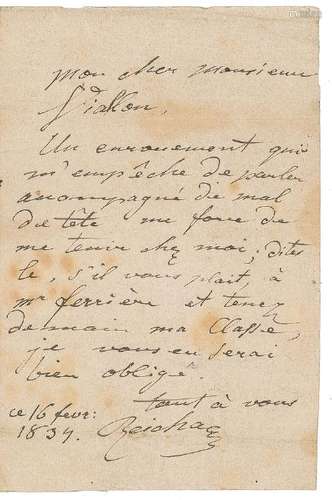 mon cher monsieur
Viallon,
Un enrouement qui
m'empêche de parler
accompagné de mal
de tête me force de
me tenir chez moi, dites
le, s'il vous plait, à
mr ferrière et tenez
demain ma Classe,
je vous en serai
bien obligé.
tout à vous
ce 16 fevr:
1834. Reicha